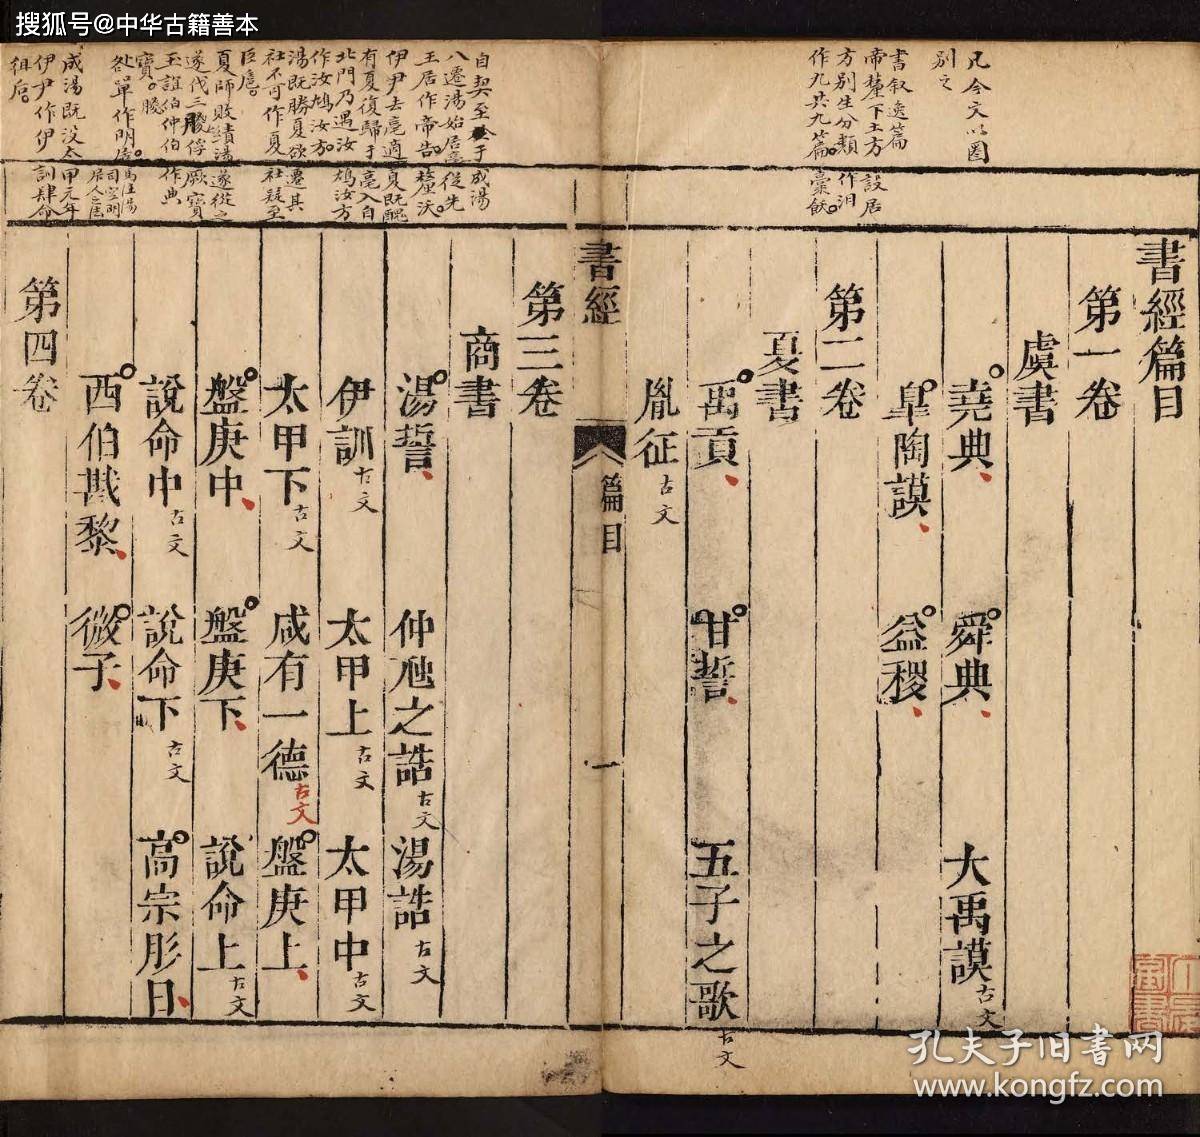 搜狐号@中华古籍善本
凡今文以圈
别之
書叙逸篇
帝釐下土方設居
方别生分類作汨
作九共九篇槀飫
書經篇目
第一卷
虞書
堯典 舜典 大禹謨古文
皐陶謨 益稷
第二卷
夏書
禹貢 甘誓 五子之歌古文
胤征古文
書經 篇目 一
自契至于成湯
八遷湯始居亳從先
王居作帝告釐沃
伊尹去亳適夏既醜
有夏復歸于亳入自
北門乃遇汝鳩汝方
作汝鳩汝方
湯既勝夏欲遷其
社不可作夏社疑至
臣扈
夏師敗績湯遂從之
遂伐三朡俘厥寶
玉誼伯仲伯作典
寶
咎單作明居
成湯既没太甲元年
伊尹作伊訓肆命
徂后
第三卷
商書
湯誓 仲虺之誥古文 湯誥古文
伊訓古文 太甲上古文 太甲中古文
太甲下古文 咸有一德古文 盤庚上
盤庚中 盤庚下 說命上古文
說命中古文 說命下古文 高宗肜日
西伯戡黎 微子
第四卷
孔夫子旧书网
www.kongfz.com